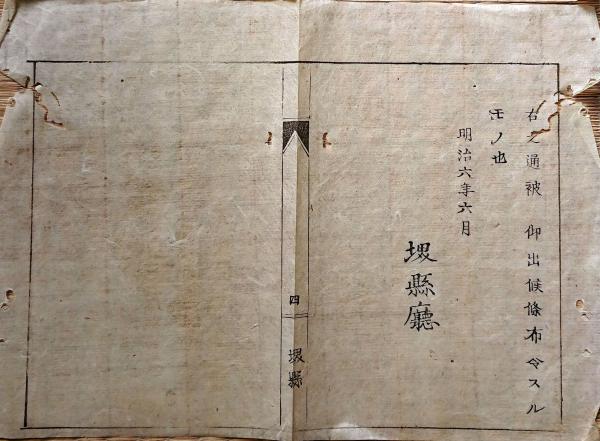 右之通被 仰出候條布令スル
モノ也
明治六年六月
堺縣廳
四
堺縣